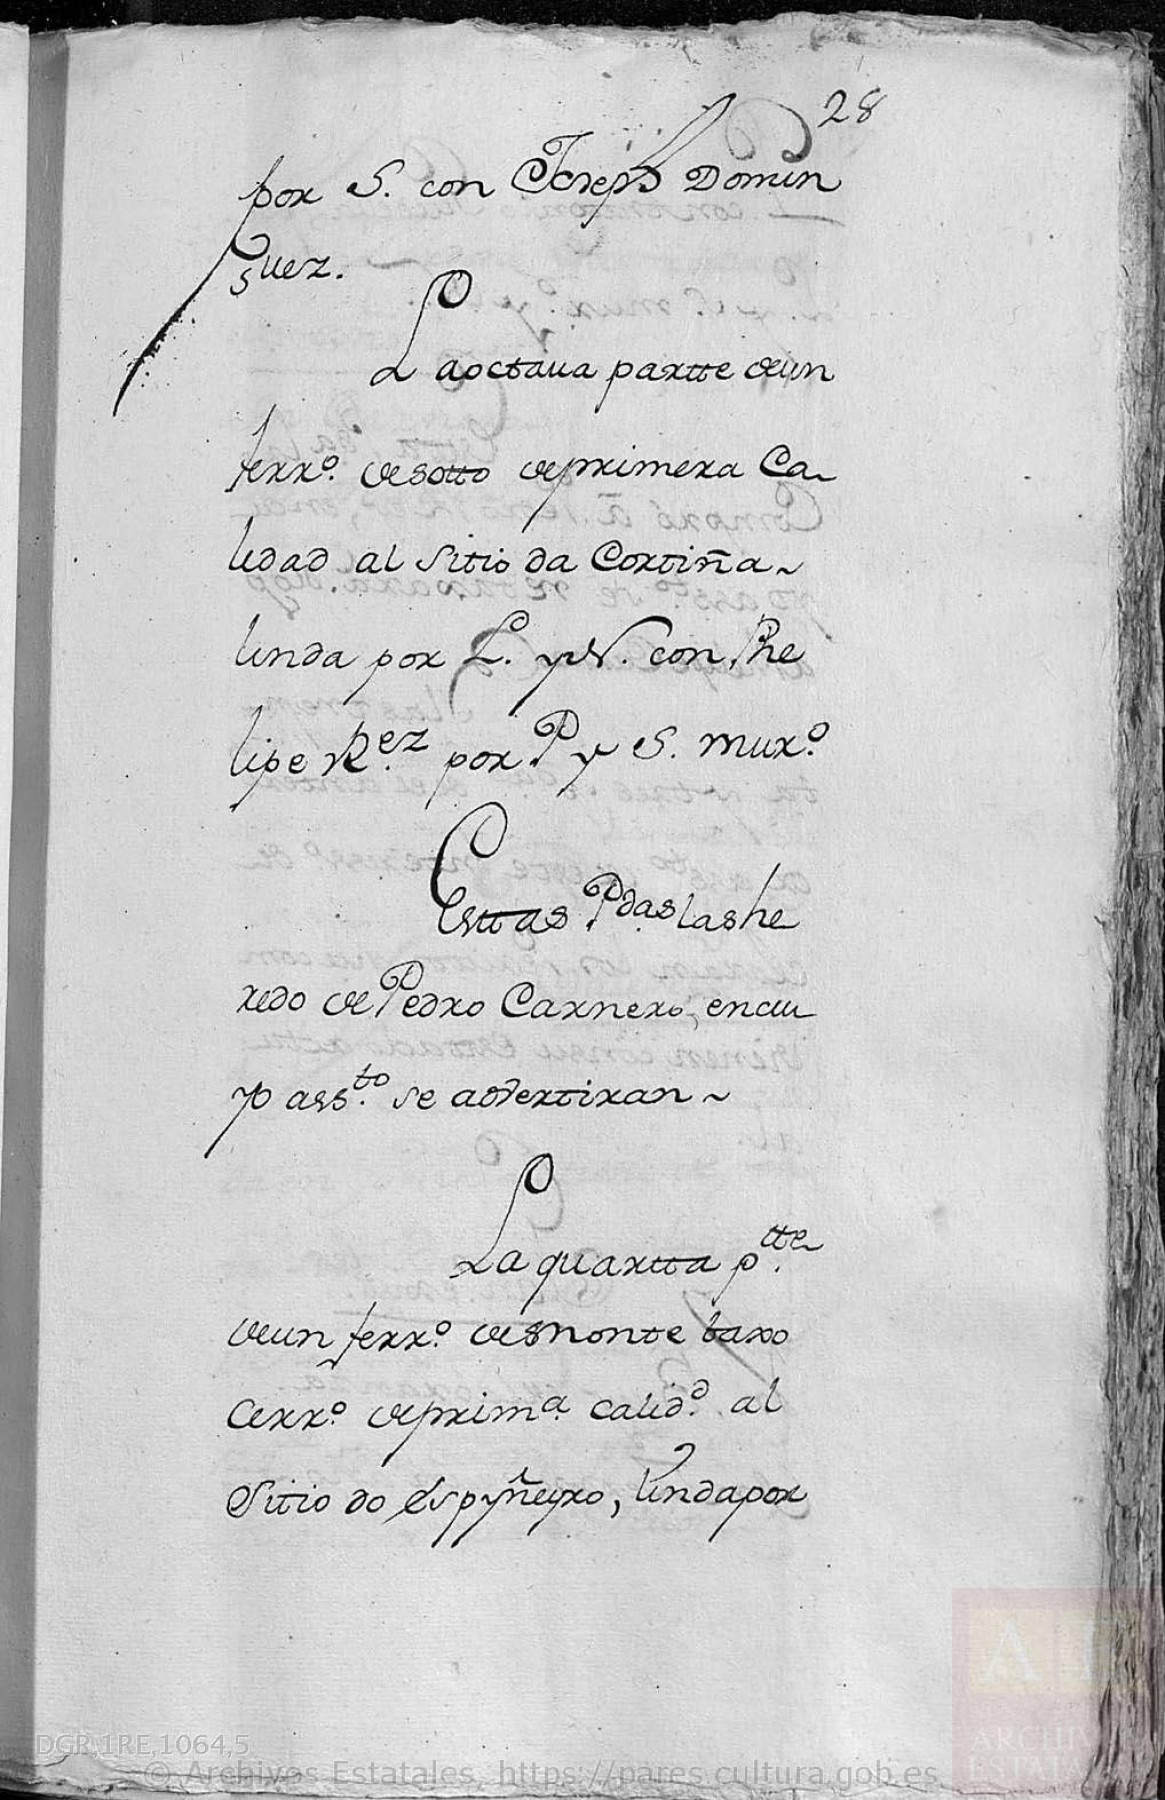 28
por S. con Joseph Domin
guez.
La octaua partte deun
ferr.º de sotto de primera Ca-
lidad al sitio da Cortiña~
linda por L. y N. con Phe
lipe R.ez por P. y S. mur.º
Esttas P.das las he
redo de Pedro Carnero, encu
yo ass.to se advertiran~
La quartta p.tte
deun ferr.º de monte baxo
Cerr.º de prim.a calid.d al
Sitio do Espyñeyro, linda por
DGR,1RE,1064,5
© Archivos Estatales, https://pares.cultura.gob.es